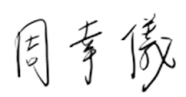 周幸儀